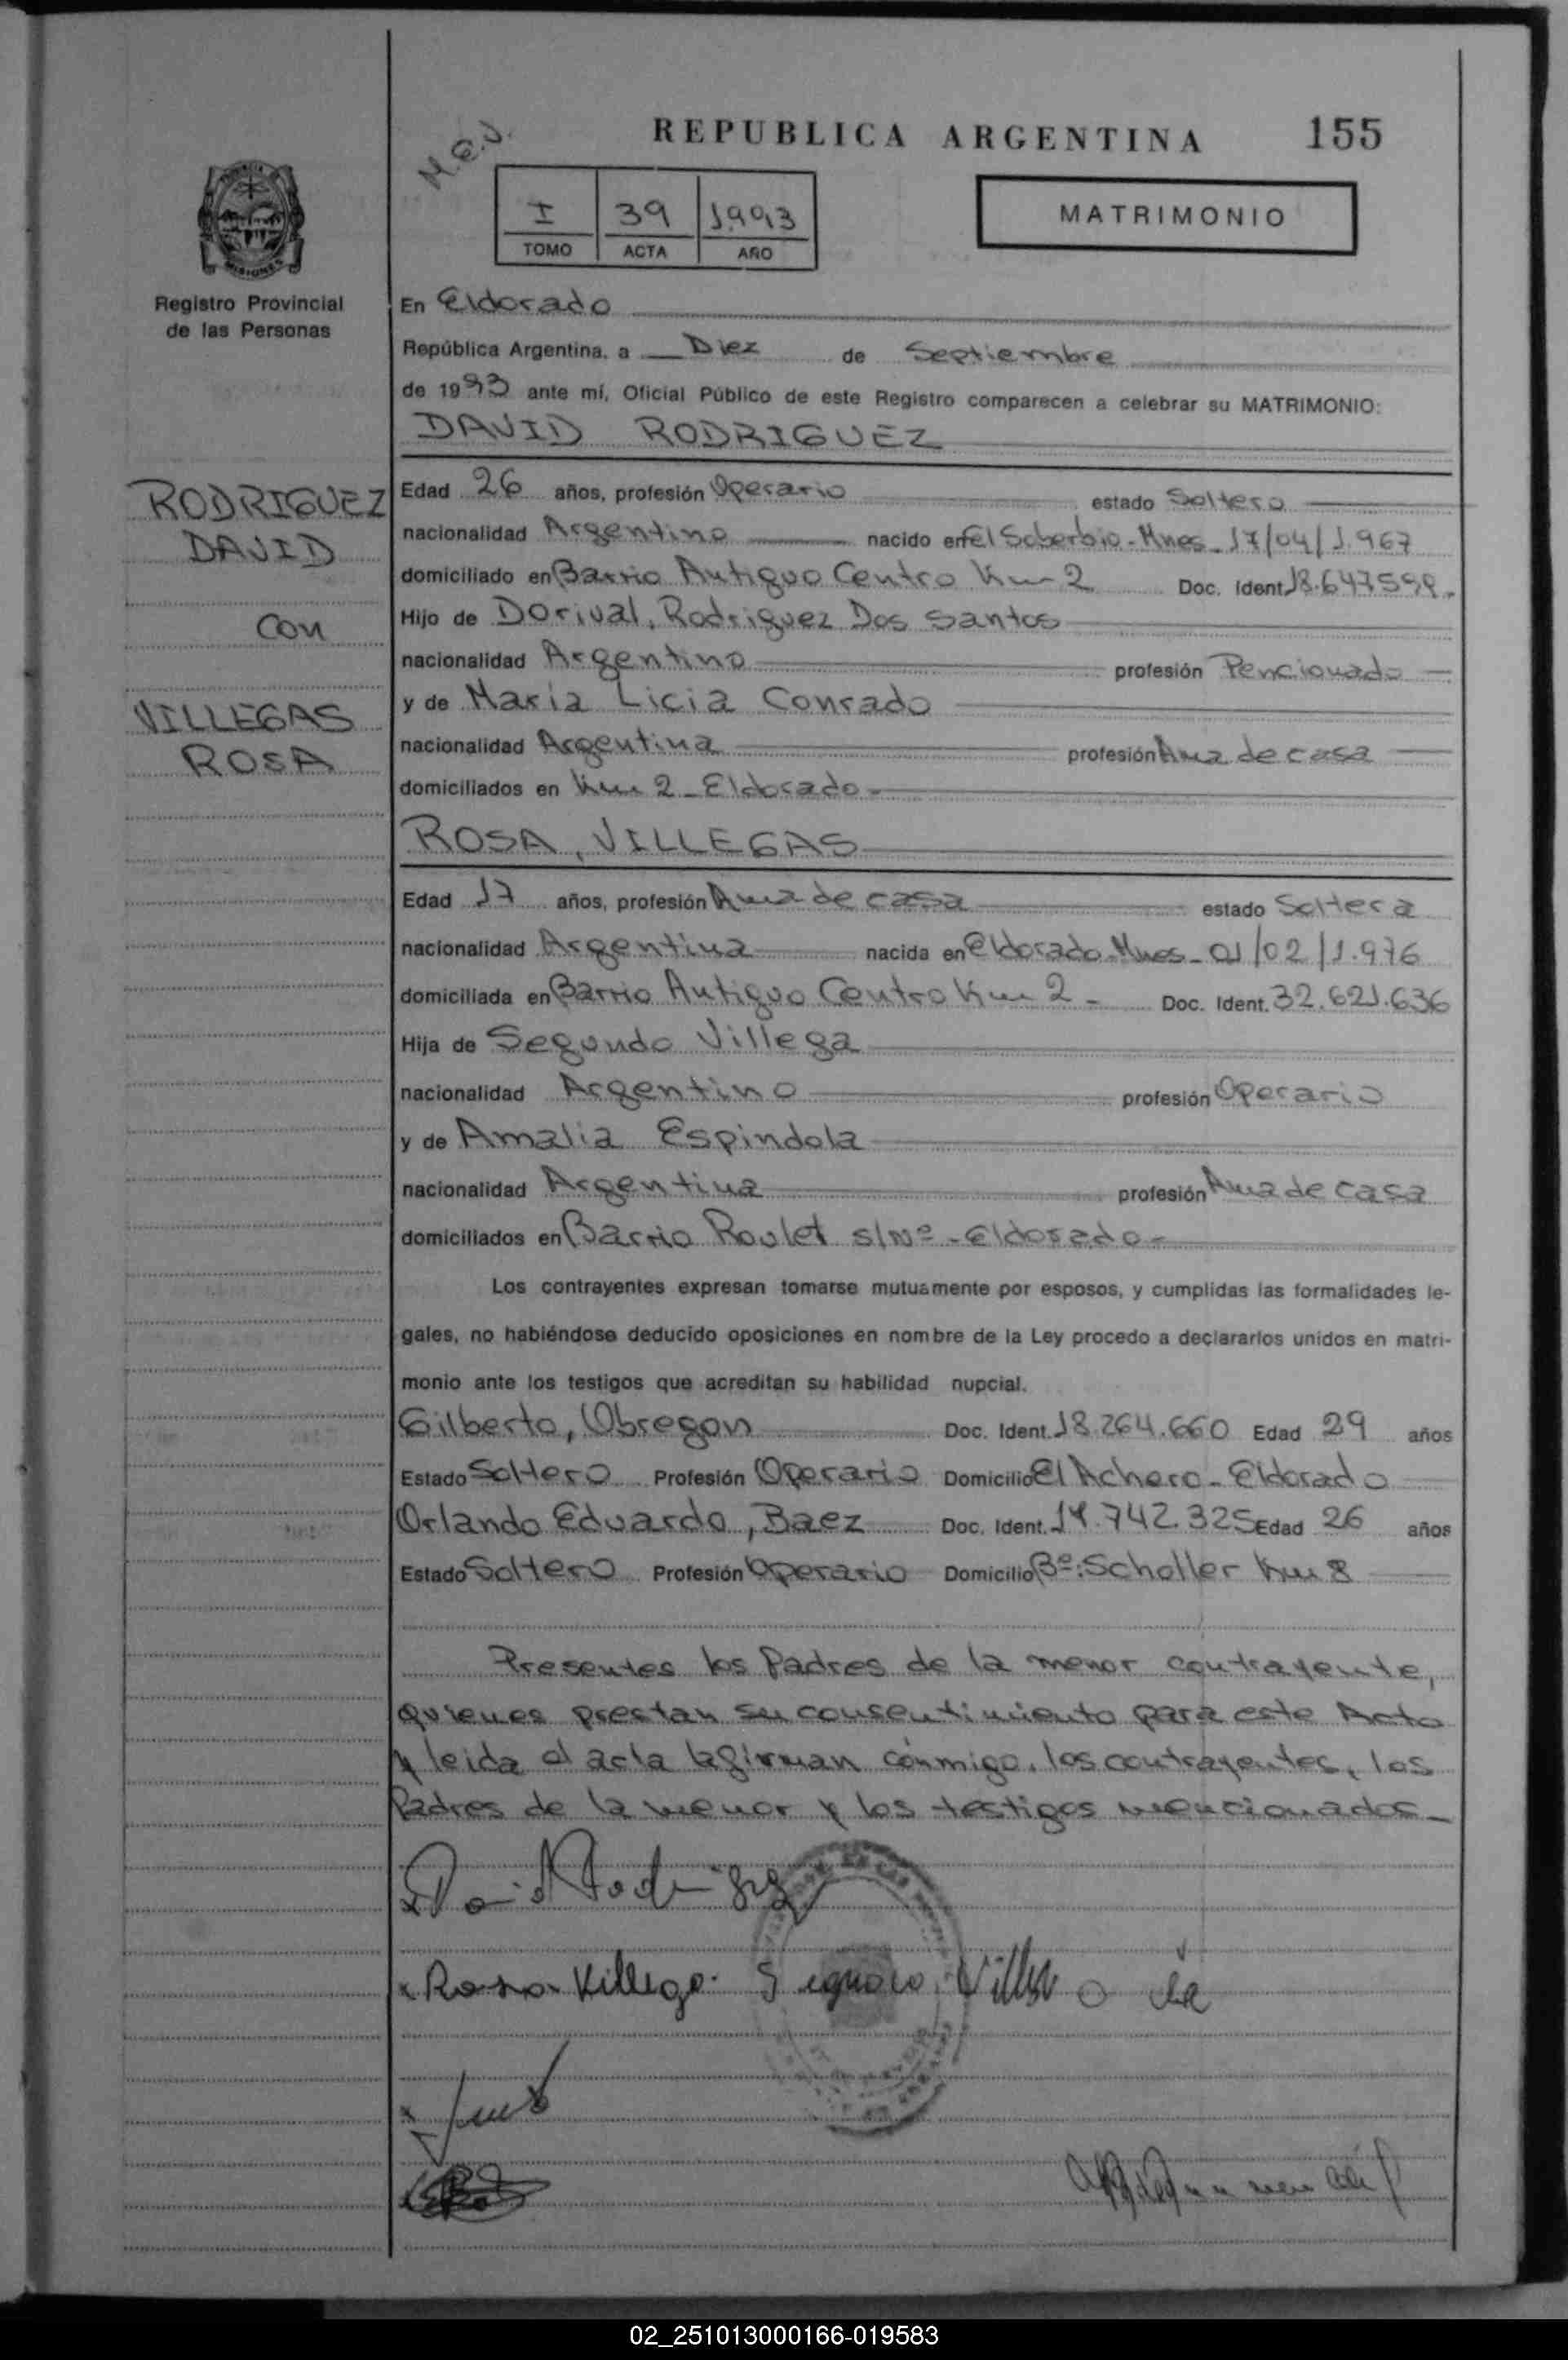 REPUBLICA ARGENTINA 155
M.E.V.
I 39 1993
TOMO ACTA AÑO
MATRIMONIO
MISIONES
Registro Provincial
de las Personas
En Eldorado
República Argentina, a Diez de Septiembre
de 1993 ante mí, Oficial Público de este Registro comparecen a celebrar su MATRIMONIO:
DAVID RODRIGUEZ
RODRIGUEZ
DAVID
con
VILLEGAS
ROSA
Edad 26 años, profesión Operario estado Soltero
nacionalidad Argentino nacido en El Soberbio - Mnes - 17/04/1.967
domiciliado en Barrio Antiguo Centro Km 2 Doc. Ident. 18.647.559.
Hijo de Dorival, Rodriguez Dos Santos
nacionalidad Argentino profesión Pencionado
y de María Licia Conrado
nacionalidad Argentina profesión Ama de casa
domiciliados en Km 2 - Eldorado -
ROSA, VILLEGAS
Edad 17 años, profesión Ama de casa estado Soltera
nacionalidad Argentina nacida en Eldorado - Mnes - 01/02/1.976
domiciliada en Barrio Antiguo Centro Km 2 - Doc. Ident. 32.621.636
Hija de Segundo Villega
nacionalidad Argentino profesión Operario
y de Amalia Espindola
nacionalidad Argentina profesión Ama de casa
domiciliados en Barrio Roulet s/Nº - Eldorado -
Los contrayentes expresan tomarse mutuamente por esposos, y cumplidas las formalidades le-
gales, no habiéndose deducido oposiciones en nombre de la Ley procedo a declararlos unidos en matri-
monio ante los testigos que acreditan su habilidad nupcial.
Gilberto, Obregon Doc. Ident. 18.264.660 Edad 29 años
Estado Soltero Profesión Operario Domicilio El Achero - Eldorado
Orlando Eduardo, Baez Doc. Ident. 17.742.325 Edad 26 años
Estado Soltero Profesión Operario Domicilio Bº: Scholler Km 8
Presentes los Padres de la menor contrayente,
quienes prestan su consentimiento para este Acto
y leida el acta la firman conmigo, los contrayentes, los
Padres de la menor y los testigos mencionados -
Rosa Villega
02_251013000166-019583